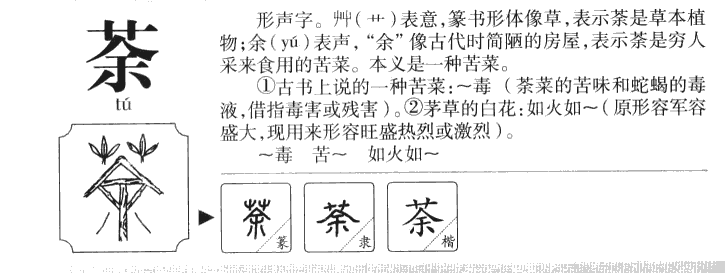 荼
tú
形声字。艸(艹)表意,篆书形体像草,表示荼是草本植
物;余(yú)表声,“余”像古代时简陋的房屋,表示荼是穷人
采来食用的苦菜。本义是一种苦菜。
①古书上说的一种苦菜:～毒(荼菜的苦味和蛇蝎的毒
液,借指毒害或残害)。②茅草的白花:如火如～(原形容军容
盛大,现用来形容旺盛热烈或激烈)。
～毒 苦～ 如火如～
荼 篆 荼 隶 荼 楷